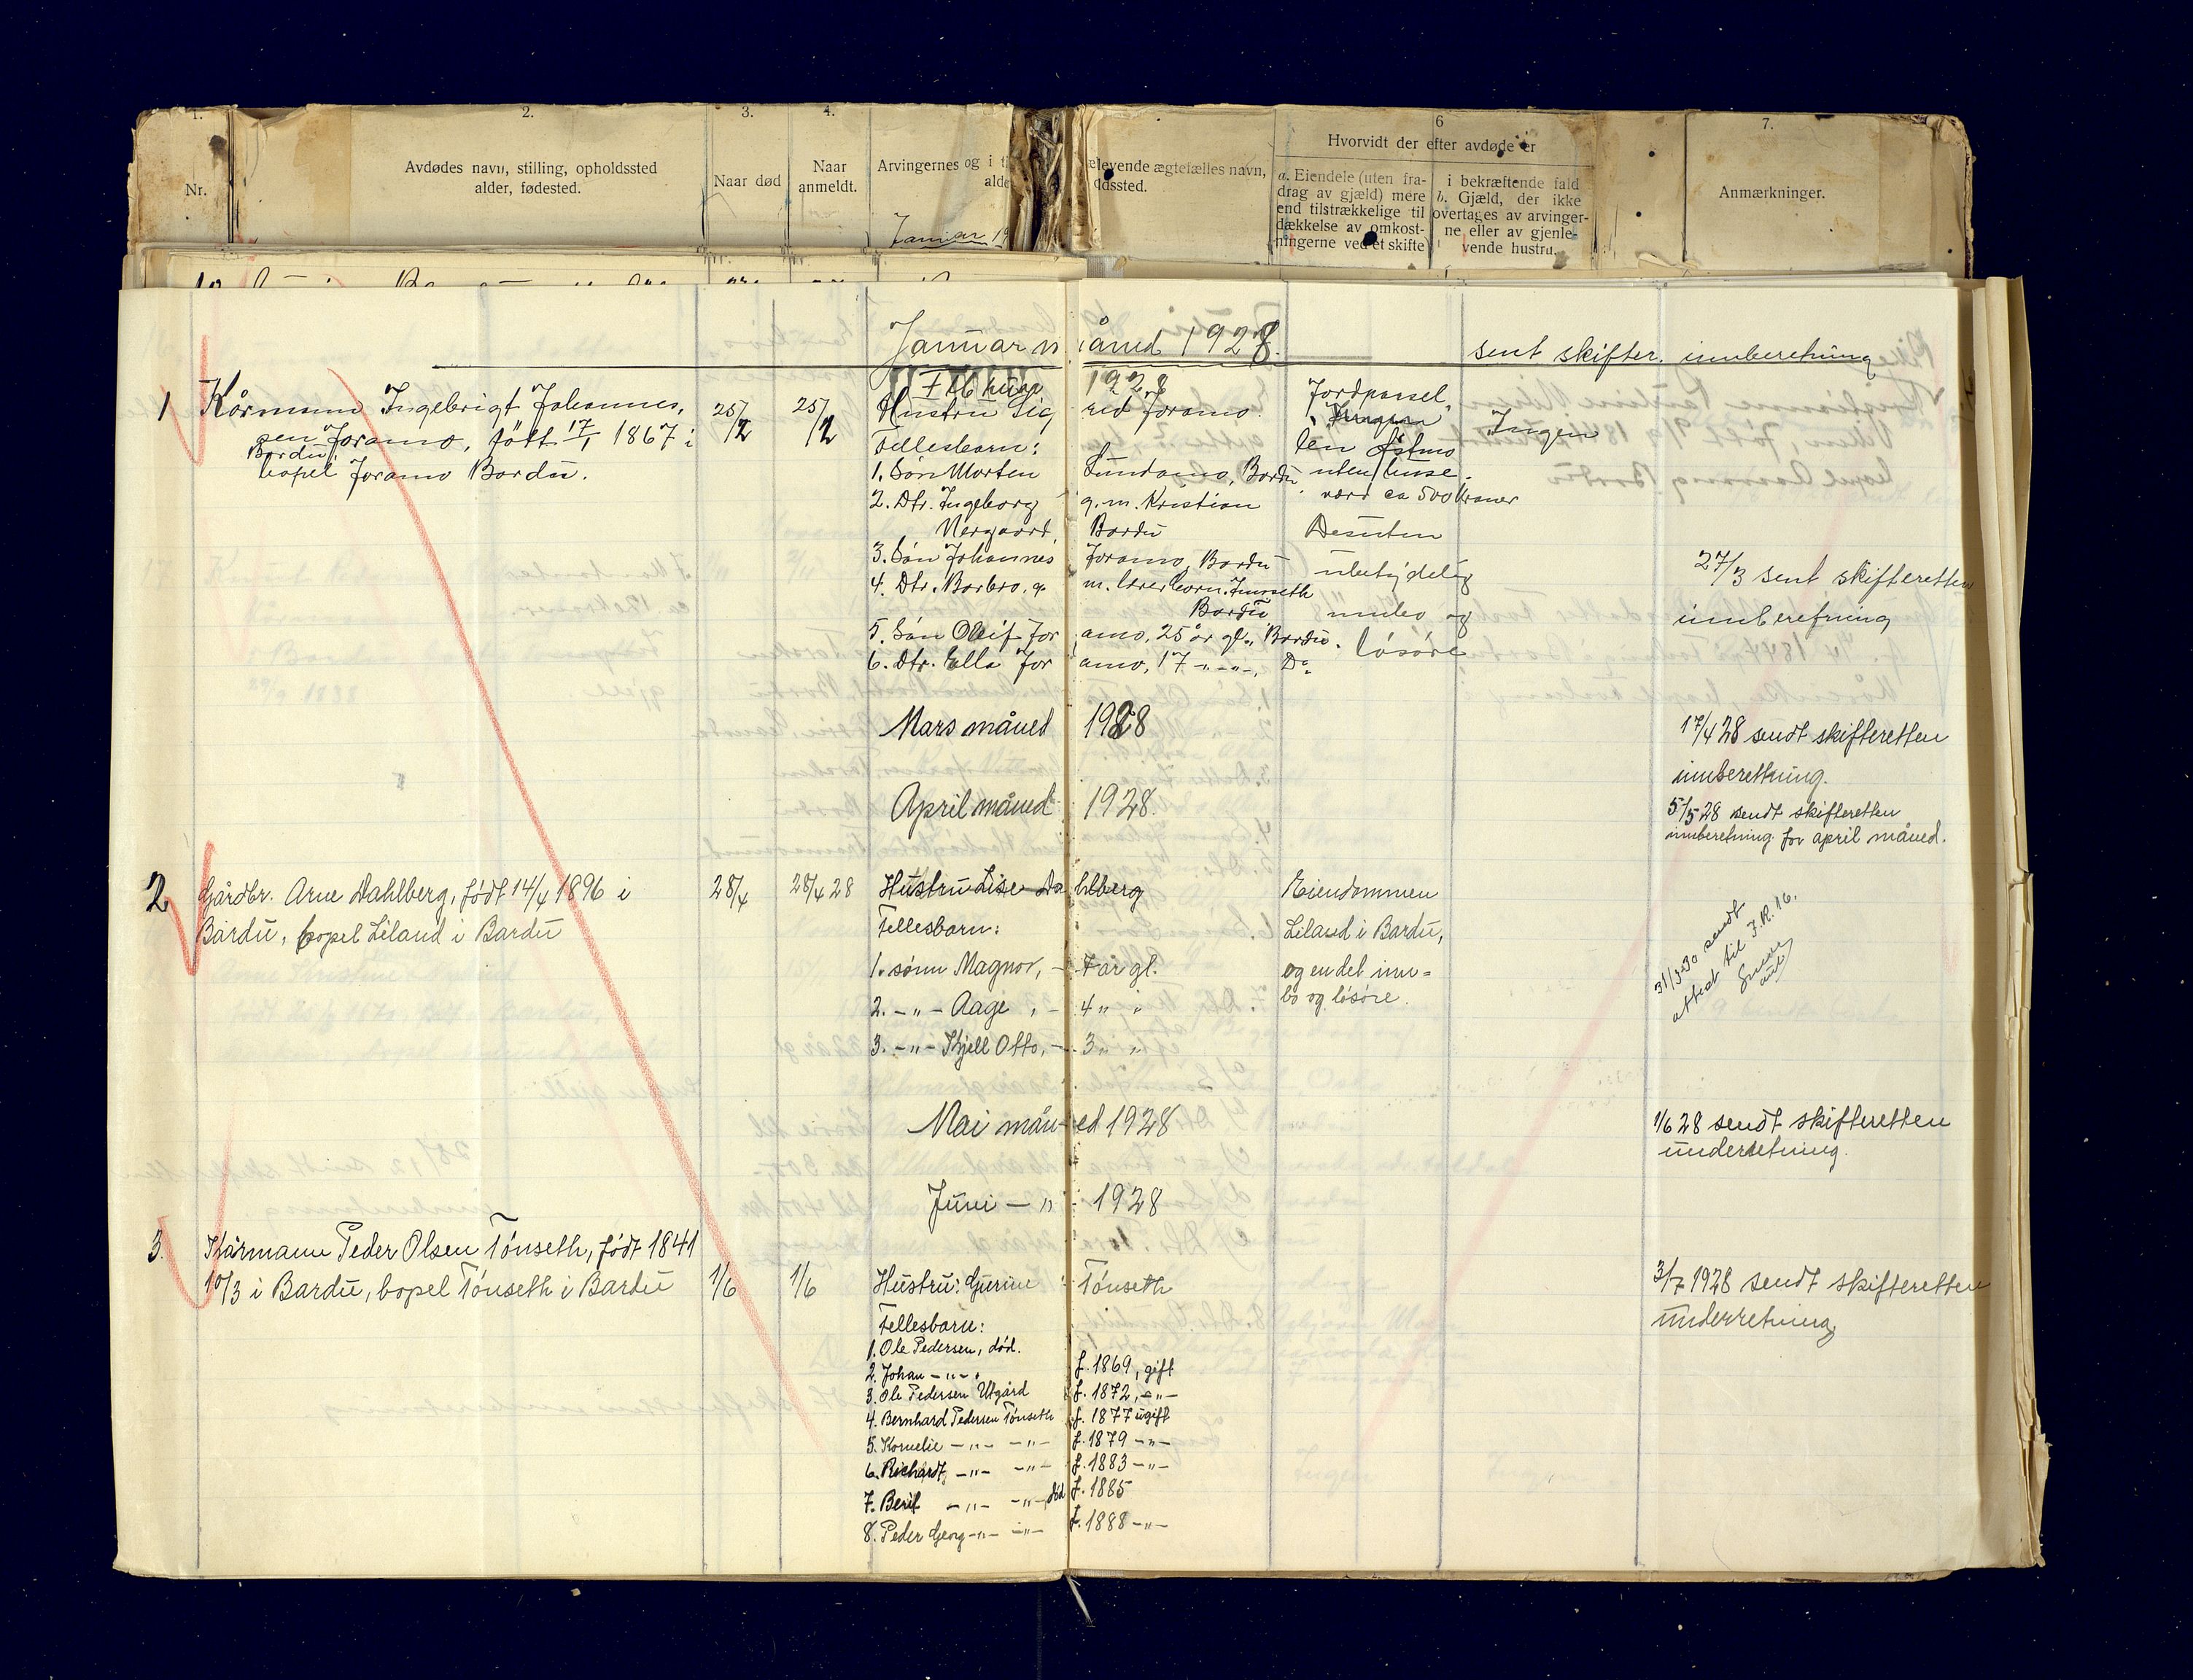 1.
2.
3.
4.
6
7.
Nr.
Avdødes navn, stilling, opholdssted
alder, fødested.
Naar død
Naar
anmeldt.
Arvingernes og i t
alde
elevende ægtefælles navn,
dssted.
Hvorvidt der efter avdøde er
a. Eiendele (uten fra-
drag av gjæld) mere
end tilstrækkelige til
dækkelse av omkost-
ningerne ved et skifte
i bekræftende fald
b. Gjæld, der ikke
overtages av arvinger-
ne eller av gjenle-
vende hustru.
Anmærkninger.
Januar 19
Januar måned 1928.
sent skifter. innberetning
1 Kårmann Ingebrigt Johannes,
sen Joramo, født 17/1 1867 i
Bardu
bopel Joramo Bardu.
25/2
25/2
1928
Hustru Sigrid Joramo.
Fellesbarn:
1. Søn Morten Sundamo, Bardu
2. Dtr. Ingeborg g. m. Kristian
Nergaard, Bardu
3. Søn Johannes Joramo, Bardu
4. Dtr. Barbro. g. m. lærer Corn. Innseth
Bardu
5. Søn Oleif Joramo, 25 år gl., Bardu.
6. Dtr. Ella Joramo, 17 -"-"-, Do.
Jordparsel,
len Østmo
uten huse.
værd ca 500 kroner
Desuten
ubetydelig
innbo og
løsøre
Ingen
27/3 sent skifteretten
innberetning
Mars måned 1928
17/4 28 sendt skifteretten
innberetning.
April måned 1928.
5/5 28 sendt skifteretten
innberetning for april måned.
2 Gårdbr. Arne Dahlberg, født 14/4 1896 i
Bardu, bopel Liland i Bardu
28/4
28/4 28
Hustru Lise Dahlberg
Fellesbarn:
1. sønn Magnor, - 7 år gl.
2. -"- Aage, - 4 " "
3. -"- Kjell Otto, - 3 " "
Eiendommen
Liland i Bardu,
og en del inn-
bo og løsøre.
31/3-30 sendt
attest til F.R. 16.
Mai måned 1928
1/6 28 sendt skifteretten
underretning.
Juni -"- 1928
3. Kårmann Peder Olsen Tønseth, født 1841
10/3 i Bardu, bopel Tønseth i Bardu
1/6
1/6
Hustru: Gurine Tønseth
Fellesbarn:
1. Ole Pedersen, død.
2. Johan -"- f. 1869, gift
3. Ole Pedersen Utgård f. 1872, -"-
4. Bernhard Pedersen Tønseth f. 1877 ugift
5. Kornelie -"- -"- f. 1879 -"-
6. Richardt -"- -"- f. 1883 -"-
7. Berit -"- -"- død f. 1885
8. Peder Georg -"- -"- f. 1888 -"-
3/7 1928 sendt skifteretten
underretning